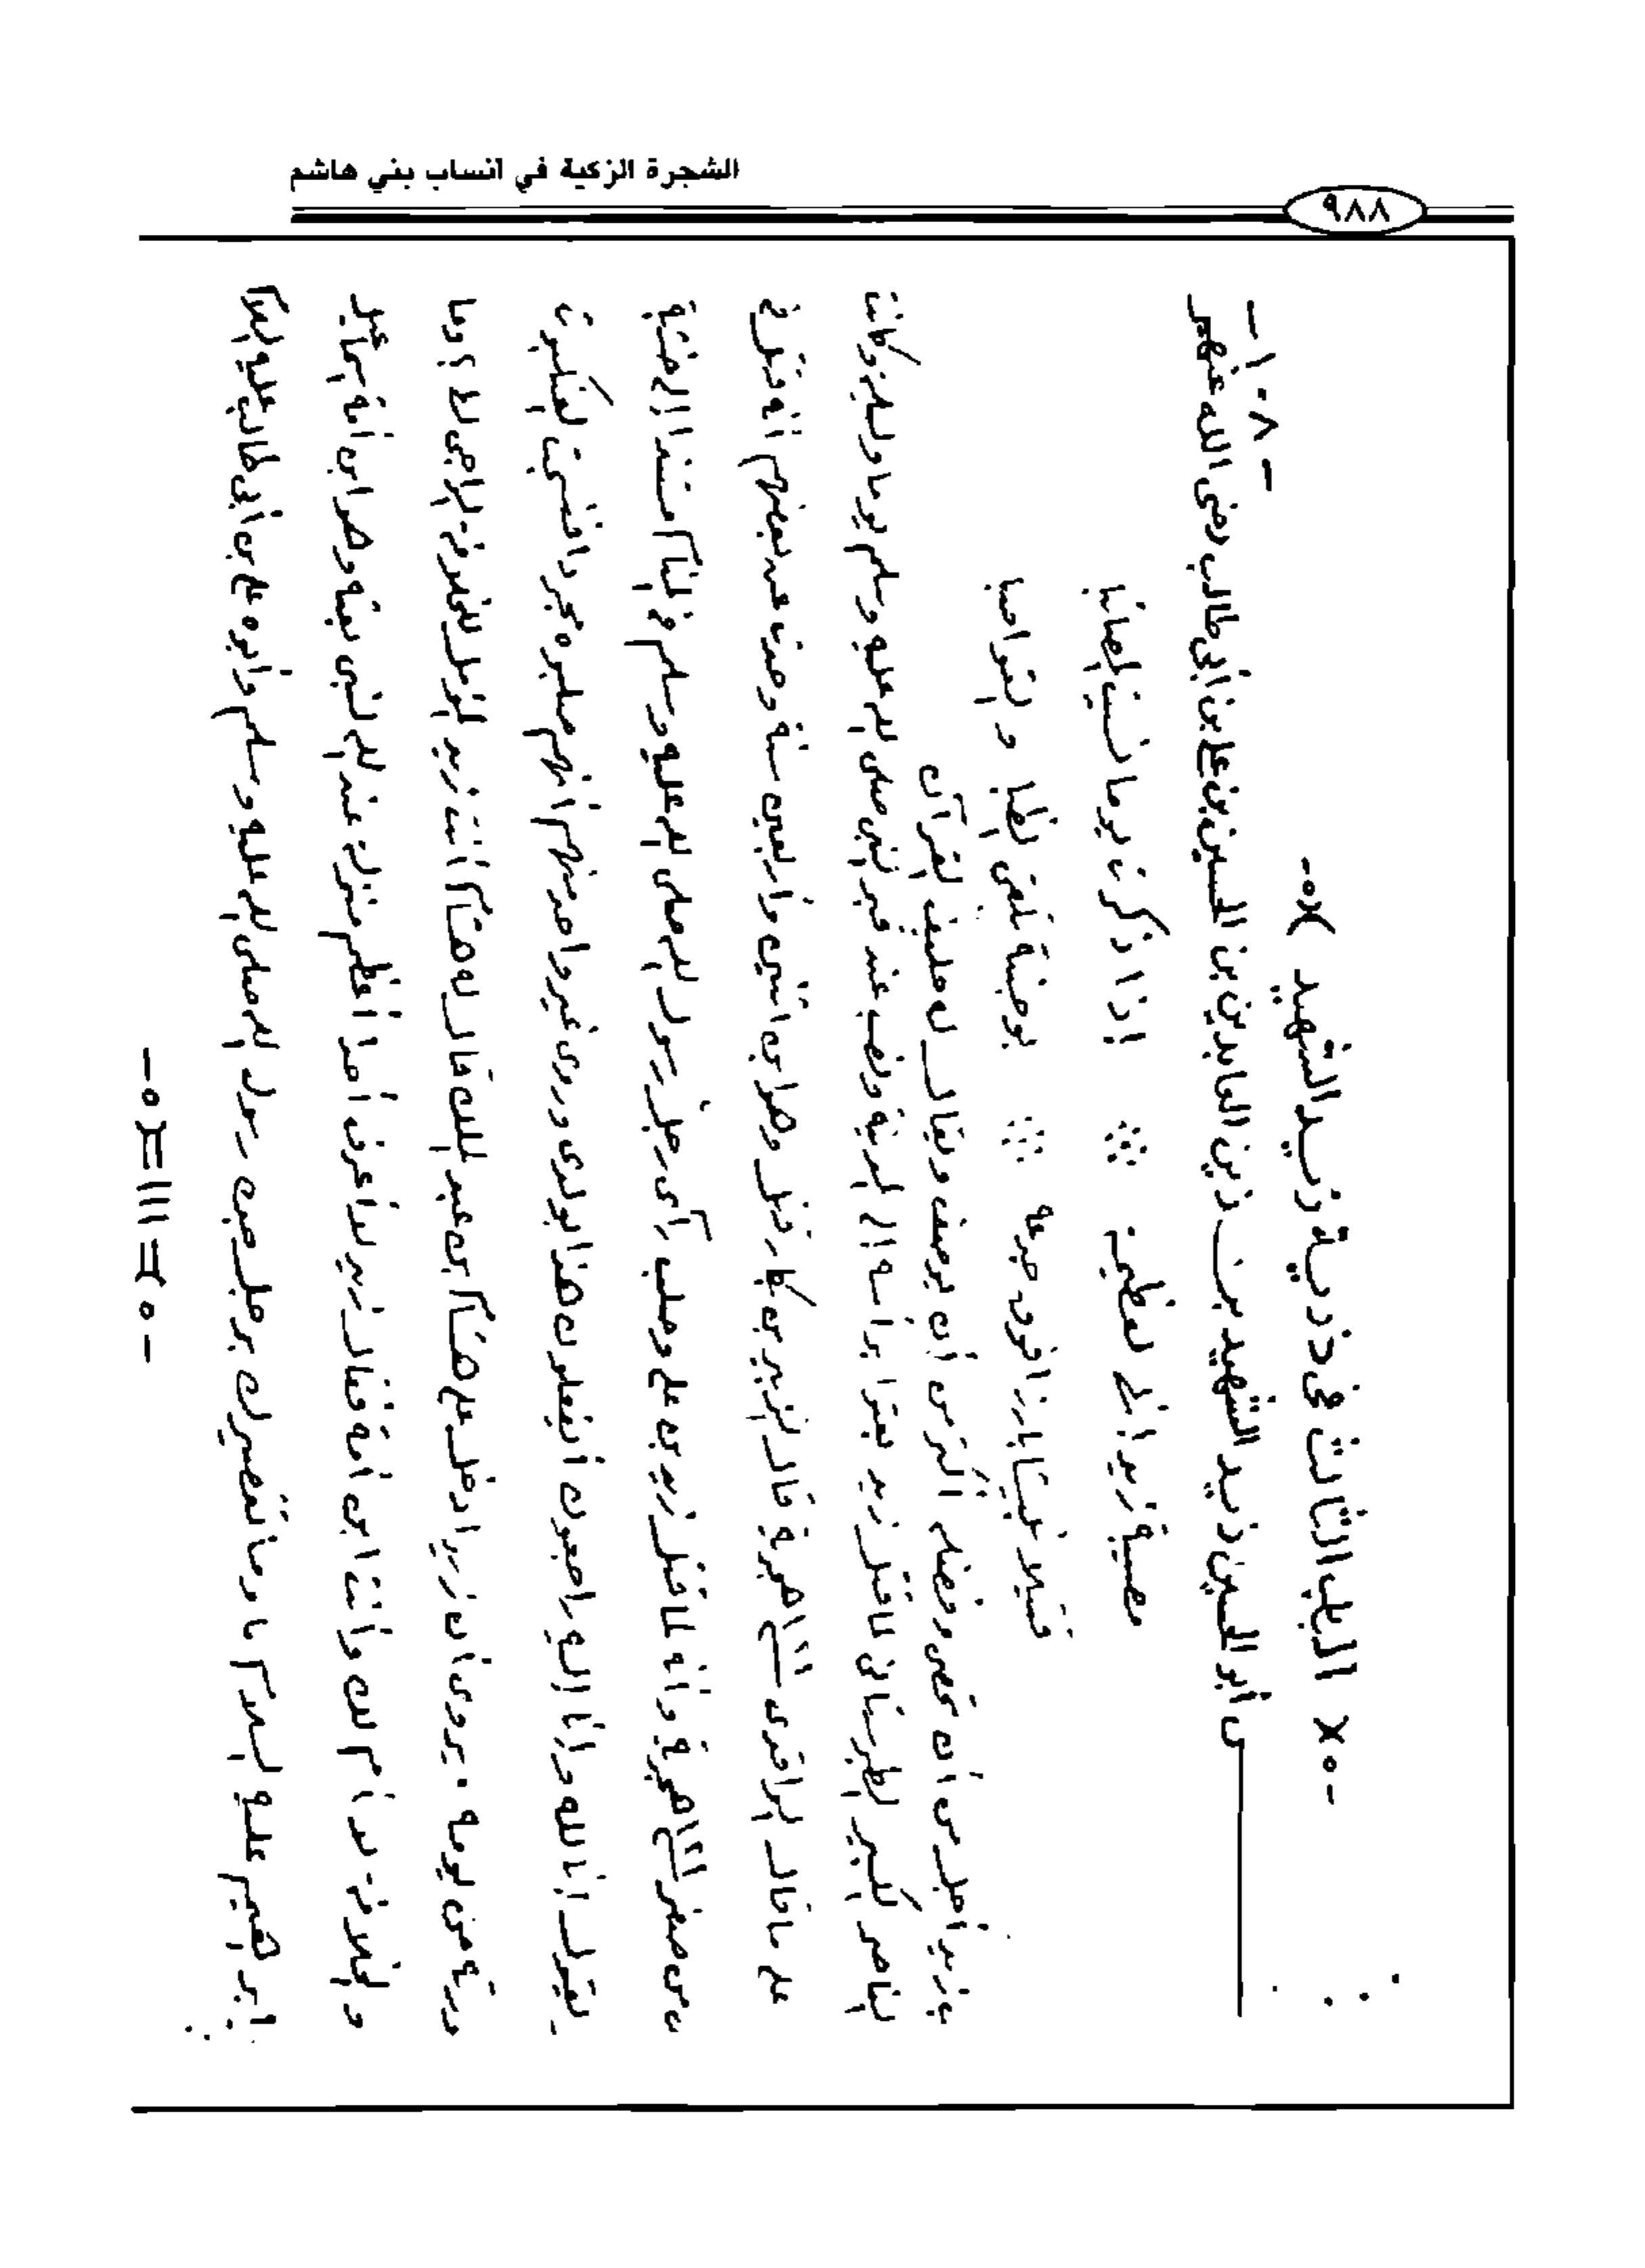 الشجرة الزكية في انساب بني هاشم
٩٨٨
- ١٠٨ -
-٥× الباب الثالث في ذرية زيد الشهيد ×٥-
س أبو الحسين زيد الشهيد بن زين العابدين بن الحسين بن علي بن ابى طالب رضى الله عنهم
مصيبة زيد انها لعظيمة ∴ اذا ذكرت يوما نسيت المصائبا
قتيلا غريبا بارزا فوق جذعة ∴ بوجنة تلقى الظبا والقواضبا
زيد أجل من أن تحصى وفضله أكثر من أن يوصف ويقال له حليف القرآن
الناصر الكبير الطبرستانى لما قتل زيد بعثوا برأسه الى المدينة ونصب عند قبر النبي صلى الله عليه وسلم يوما وليلة وكانت
على ما قال الواقدى سنة ١٢١ هجرية قال الزبير بن بكار قتل وهو ابن اثنين وأربعين سنة وحدث عند بعضهم انه قتل فى
من صفر سنة ١٢١ هجرية وأنه لما قتل زيد بن على وصلب رأى رجل رسول الله صلى الله عليه وسلم فى المنام مستندا الى خشبة
يقول انا لله وانا اليه راجعون أيفعلون هذا بولدى وروى غير واحد منهم أنهم صلبوه مجردا فنسجت العنكبوت
من يومه . يروى أن زيدا دخل على هشام بن عبد الملك فقال له هشام أنت زيد المؤمل للخلافة الراجى لها وما
والخلافة لا أم لك وأنت ابن أمة فقال زيد لا أعرف أحدا أعظم منزلة عند الله من نبى بعثه وهو ابن أمة اسماعيل
ابن ابراهيم عليه السلام وما تقصيرك برجل جده رسول الله صلى الله عليه وسلم وأبوه على بن أبى طالب عليه السلام